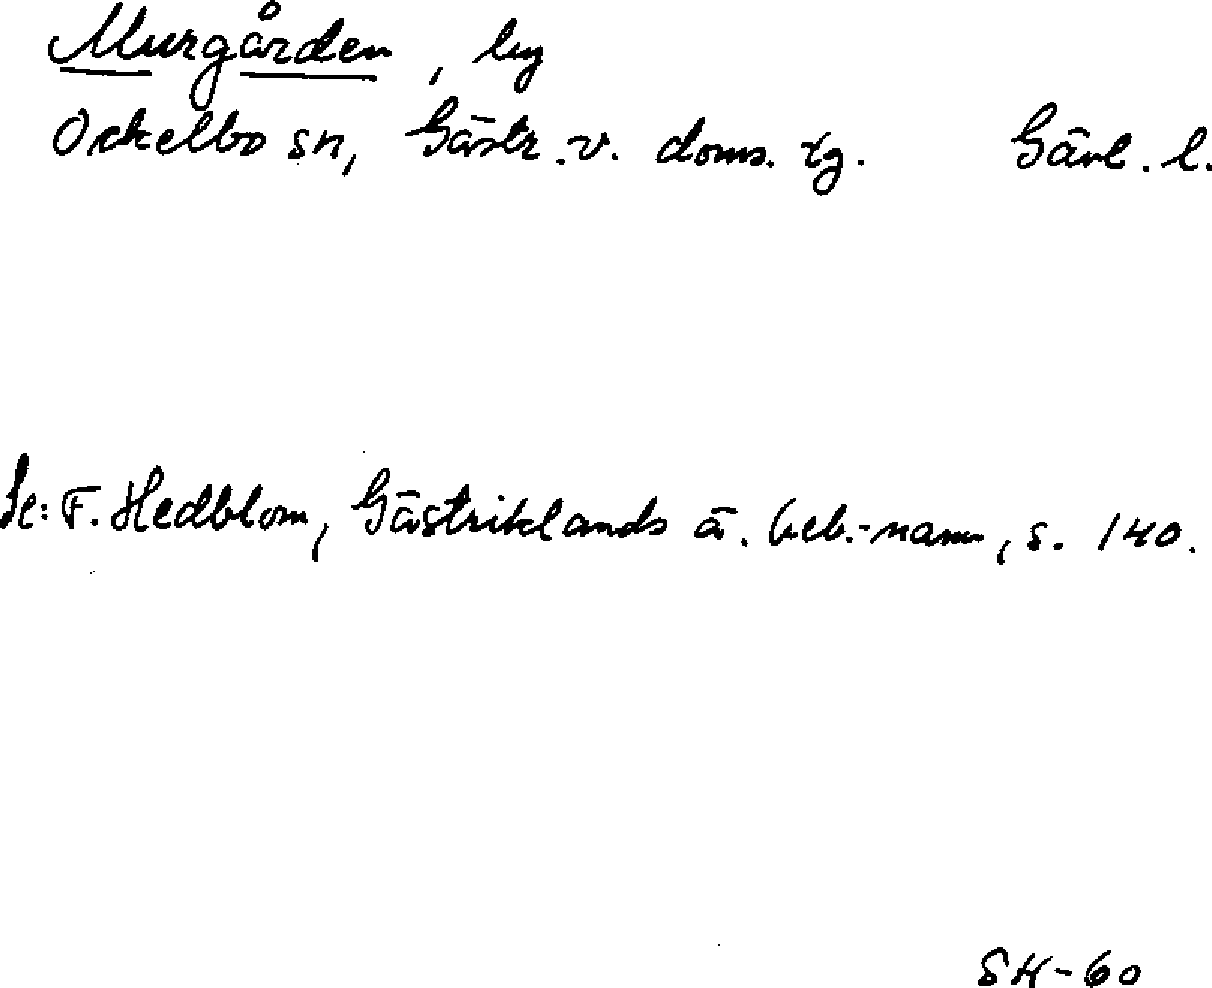 Murgården, by
Ockelbo sn, Gästr.v. doms. tg. Gävl. l.
Se: F. Hedblom, Gästriklands ä. beb.-namn, s. 140.
SH-60